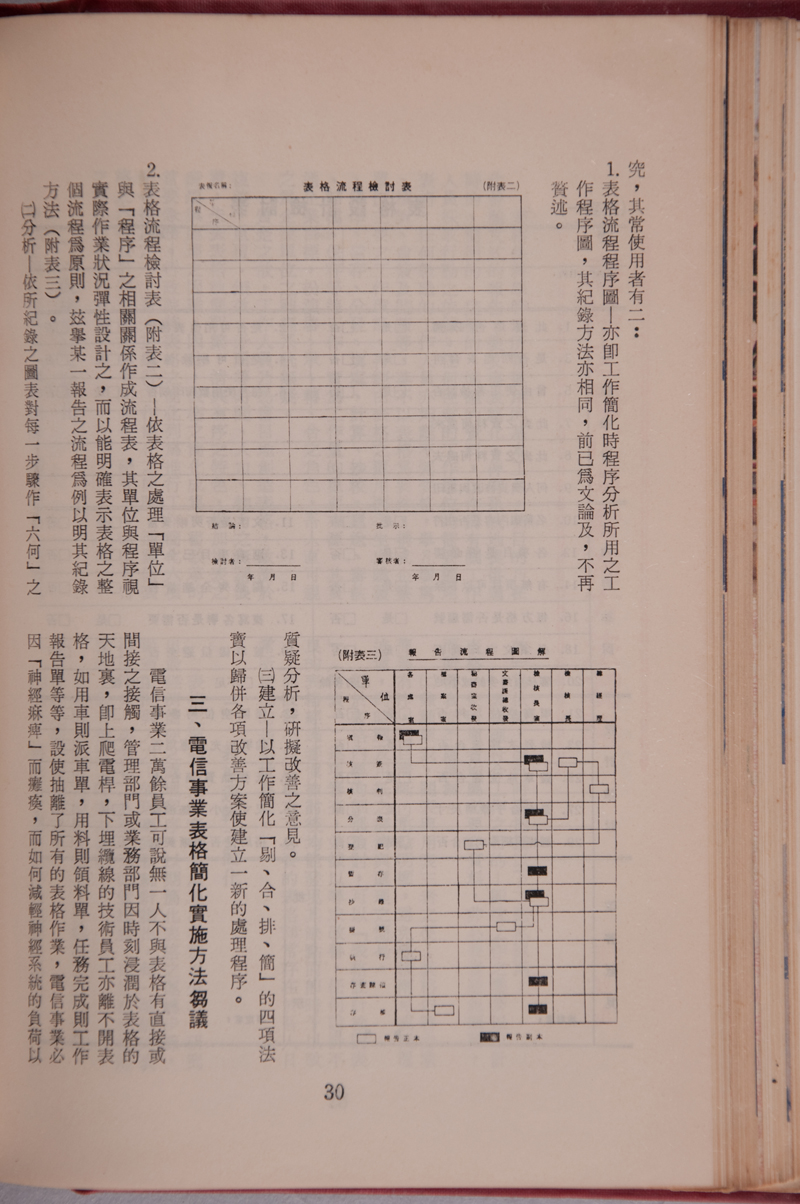 究，其常使用者有二：
1.表格流程程序圖—亦卽工作簡化時程序分析所用之工
作程序圖，其紀錄方法亦相同，前已爲文論及，不再
贅述。
(附表二)
表格流程檢討表
表報名稱：
程
序
結　論：
批　示：
檢討者：
審核者：
年　月　日
年　月　日
2.表格流程檢討表（附表二）—依表格之處理「單位」
與「程序」之相關關係作成流程表，其單位與程序視
實際作業狀況彈性設計之，而以能明確表示表格之整
個流程爲原則，玆舉某一報告之流程爲例以明其紀錄
方法（附表三）。
㈡分析—依所紀錄之圖表對每一步驟作「六何」之
(附表三)
報告流程圖解
單位
程序
分
存
執行
報告正本
報告副本
質疑分析，研擬改善之意見。
㈢建立—以工作簡化「剔、合、排、簡」的四項法
寶以歸併各項改善方案使建立一新的處理程序。
三、電信事業表格簡化實施方法芻議
電信事業二萬餘員工可說無一人不與表格有直接或
間接之接觸，管理部門或業務部門因時刻浸潤於表格的
天地裏，卽上爬電桿，下埋纜線的技術員工亦離不開表
格，如用車則派車單，用料則領料單，任務完成則工作
報告單等等，設使抽離了所有的表格作業，電信事業必
因「神經痳痺」而癱瘓，而如何減輕神經系統的負荷以
30